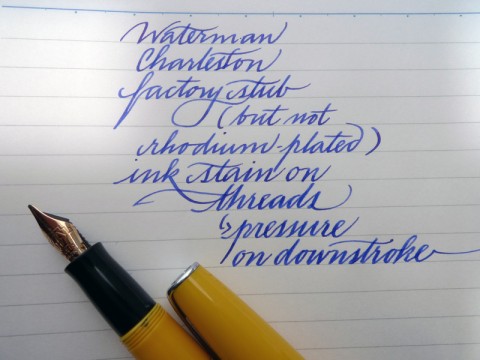 Waterman
Charleston
factory stub
(but not
rhodium-plated)
ink stain on
threads
↳ pressure
on downstroke